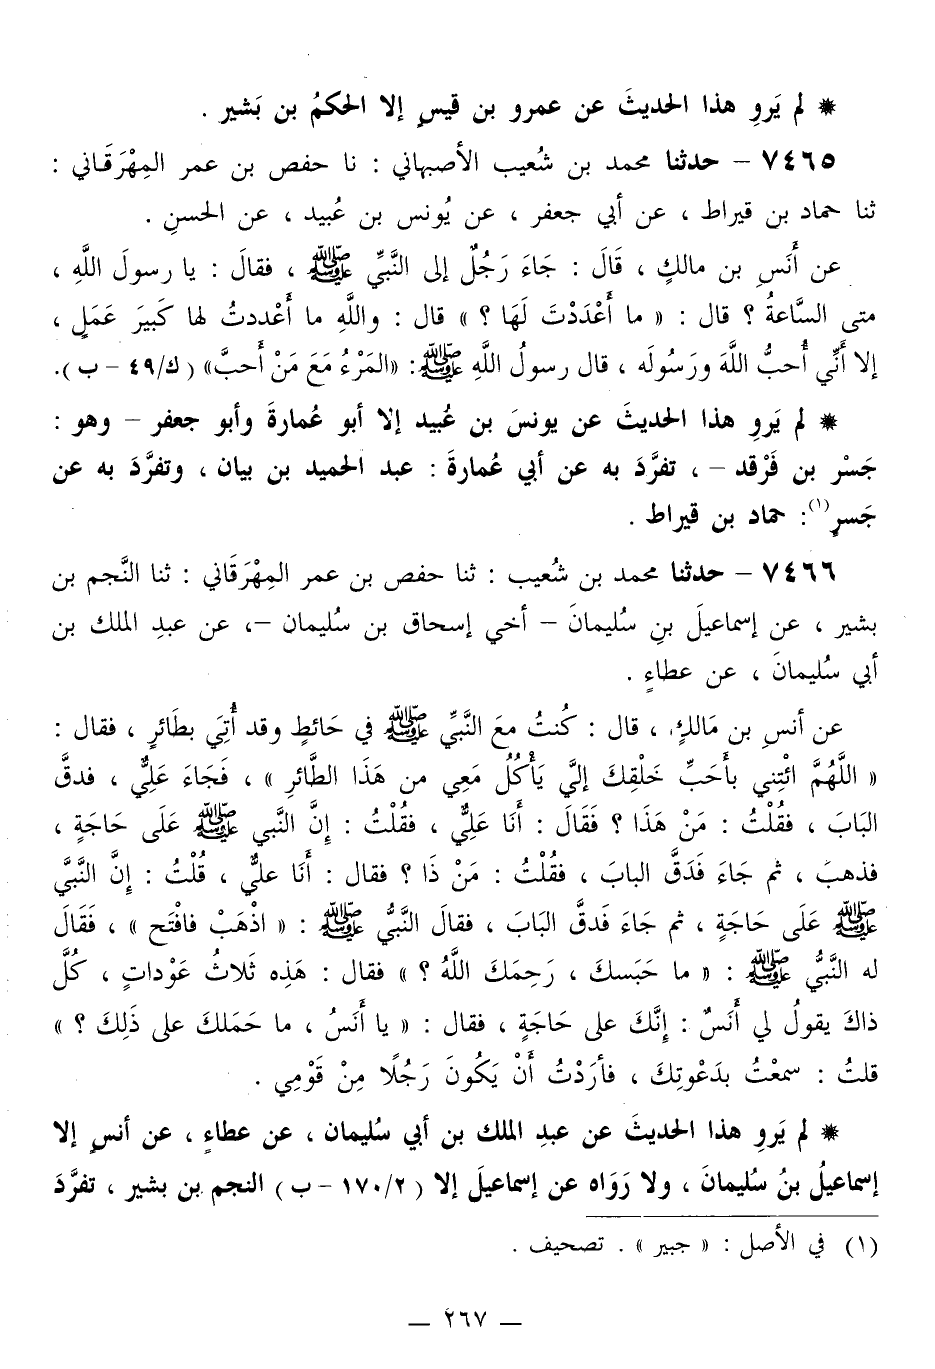 * لم يَروِ هذا الحديثَ عن عمرو بن قيسٍ إلا الحكمُ بن بَشير .
٧٤٦٥ – حدثنا محمد بن شُعيب الأصبهاني : نا حفص بن عمر المِهْرَقَاني :
ثنا حماد بن قيراط ، عن أبي جعفر ، عن يُونس بن عُبيد ، عن الحسنِ .
عن أَنَسِ بن مالكٍ ، قَالَ : جَاءَ رَجُلٌ إلى النَّبيِّ ﷺ ، فقالَ : يا رسولَ اللَّهِ ،
متى السَّاعةُ ؟ قال : « ما أَعْدَدْتَ لَهَا ؟ » قال : واللَّهِ ما أَعْددتُ لها كَبيرَ عَمَلٍ ،
إلا أنَّي أُحبُّ اللَّهَ ورَسُولَه ، قال رسولُ اللَّهِ ﷺ: «المَرْءُ مَعَ مَنْ أَحبَّ» ( ك/٤٩ – ب ).
* لم يَروِ هذا الحديثَ عن يونسَ بن عُبيد إلا أبو عُمارةَ وأبو جعفر – وهو :
جَسْر بن فَرْقد – ، تفرَّدَ به عن أبي عُمارةَ : عبد الحميد بن بيان ، وتفرَّدَ به عن
جَسرٍ(١): حماد بن قيراط .
٧٤٦٦ – حدثنا محمد بن شُعيب : ثنا حفص بن عمر المِهْرَقَاني : ثنا النَّجم بن
بشير ، عن إسماعيلَ بنِ سُليمانَ – أخي إسحاق بن سُليمان –، عن عبدِ الملك بن
أبي سُليمانَ ، عن عطاءٍ .
عن أنسِ بن مَالكٍ ، قال : كُنتُ معَ النَّبيِّ ﷺ في حَائطٍ وقد أُتِيَ بطَائرٍ ، فقال :
« اللَّهُمَّ ائْتِني بأَحَبِّ خَلْقِكَ إليَّ يَأْكُلُ مَعِي من هَذَا الطَّائرِ » ، فَجَاءَ عَليٌّ ، فدقَّ
البَابَ ، فقُلْتُ : مَنْ هَذَا ؟ فَقَالَ : أَنَا عَليٌّ ، فقُلْتُ : إنَّ النَّبي ﷺ عَلَى حَاجَةٍ ،
فذهبَ ، ثم جَاءَ فَدَقَّ البابَ ، فقُلْتُ : مَنْ ذَا ؟ فقال : أَنا عليٌّ ، قُلْتُ : إنَّ النَّبيَّ
ﷺ عَلَى حَاجَةٍ ، ثم جَاءَ فَدقَّ البَابَ ، فقالَ النَّبيُّ ﷺ : « اذْهَبْ فافْتَح » ، فَقَالَ
له النَّبيُّ ﷺ : « ما حَبَسكَ ، رَحِمَكَ اللَّهُ ؟ » فقال : هَذِه ثَلاثُ عَوْداتٍ ، كُلَّ
ذاكَ يقولُ لي أَنَسٌ : إنَّكَ على حَاجَةٍ ، فقال : « يا أَنَسُ ، ما حَمَلكَ على ذَلِكَ ؟ »
قلتُ : سمعْتُ بدَعْوتِكَ ، فأرَدْتُ أَنْ يَكُونَ رَجُلًا مِنْ قَوْمِي .
* لم يَروِ هذا الحديثَ عن عبدِ الملك بن أبي سُليمان ، عن عطاءٍ ، عن أنسٍ إلا
إسماعيلُ بنُ سُليمانَ ، ولا رَوَاه عن إسماعيلَ إلا ( ١٧٠/٢ – ب ) النجم بن بشير ، تفرَّدَ
(١) في الأصل : « جبير » . تصحيف .
– ٢٦٧ –